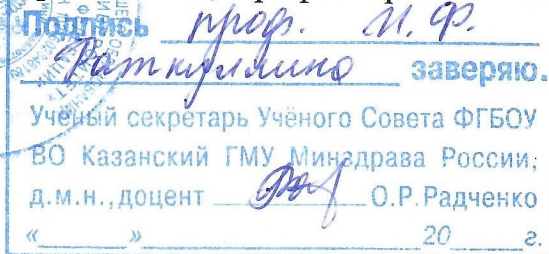 Подпись проф. И.Ф.
Фаткуллина заверяю.
Учёный секретарь Учёного Совета ФГБОУ
ВО Казанский ГМУ Минздрава России,
д.м.н., доцент О.Р.Радченко
«      »      20      г.